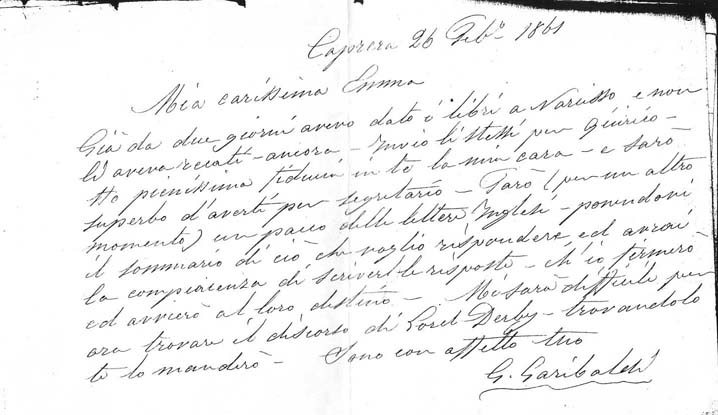 Caprera 26 Feb.º 1861
Mia carissima Emma
Già da due giorni avevo dato i libri a Narcisso e non
li aveva recati - ancora - Invio li stessi per Quirico -
Ho pienissima fiducia in te la mia cara - e sarò
superbo d'averti per segretario - Farò (per un altro
momento) un pacco delle lettere Inglesi - ponendovi
il sommario di ciò che voglio rispondere, ed avrai
la compiacenza di scrivere le risposte - ch'io firmerò
ed avvierò al loro destino - Mi sarà difficile per
ora trovare il discorso di Lord Derby - trovandolo
te lo manderò - Sono con affetto tuo
G. Garibaldi